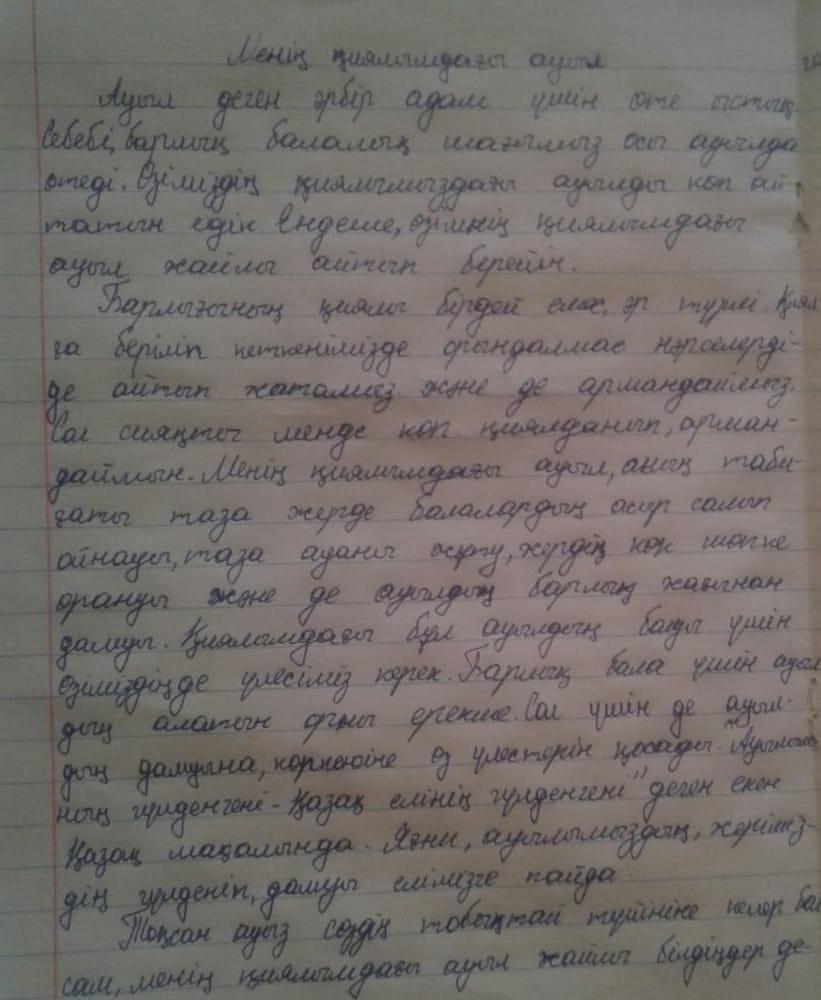 Менің қиялымдағы ауыл
Ауыл деген әрбір адам үшін өте ыстық
Себебі, барлық балалық шағымыз осы ауылда
өтеді. Өзіміздің қиялымыздағы ауылды көп ай-
татын едік. Ендеше, өзімнің қиялымдағы
ауыл жайлы айтып берейін.
Барлығының қиялы бірдей емес, әр түрлі. Қиял
ға беріліп кеткенімізде орындалмас нәрселерді-
де айтып жатамыз және де армандаймыз.
Сол сияқты менде көп қиялданып, арман-
даймын. Менің қиялымдағы ауыл, оның таби-
ғаты таза жерде балалардың асыр салып
ойнауы, таза ауаны жұту, жердің көк шөпке
орануы және де ауылдың барлық жағынан
дамуы. Қиялымдағы бұл ауылдың болуы үшін
өзіміздіңде үлесіміз керек. Барлық бала үшін ауыл
дың алатын орны ерекше. Сол үшін де ауыл-
дың дамуына, көркеюіне өз үлестерін қосады. "Ауылымыз
ның гүлденгені - Қазақ елінің гүлденгені" деген екен
Қазақ мақалында. Яғни, ауылымыздың, жеріміз-
дің гүлденіп, дамуы елімізге пайда.
Тоқсан ауыз сөздің тобықтай түйініне келер бол
сам, менің қиялымдағы ауыл жайлы білдіңдер де-